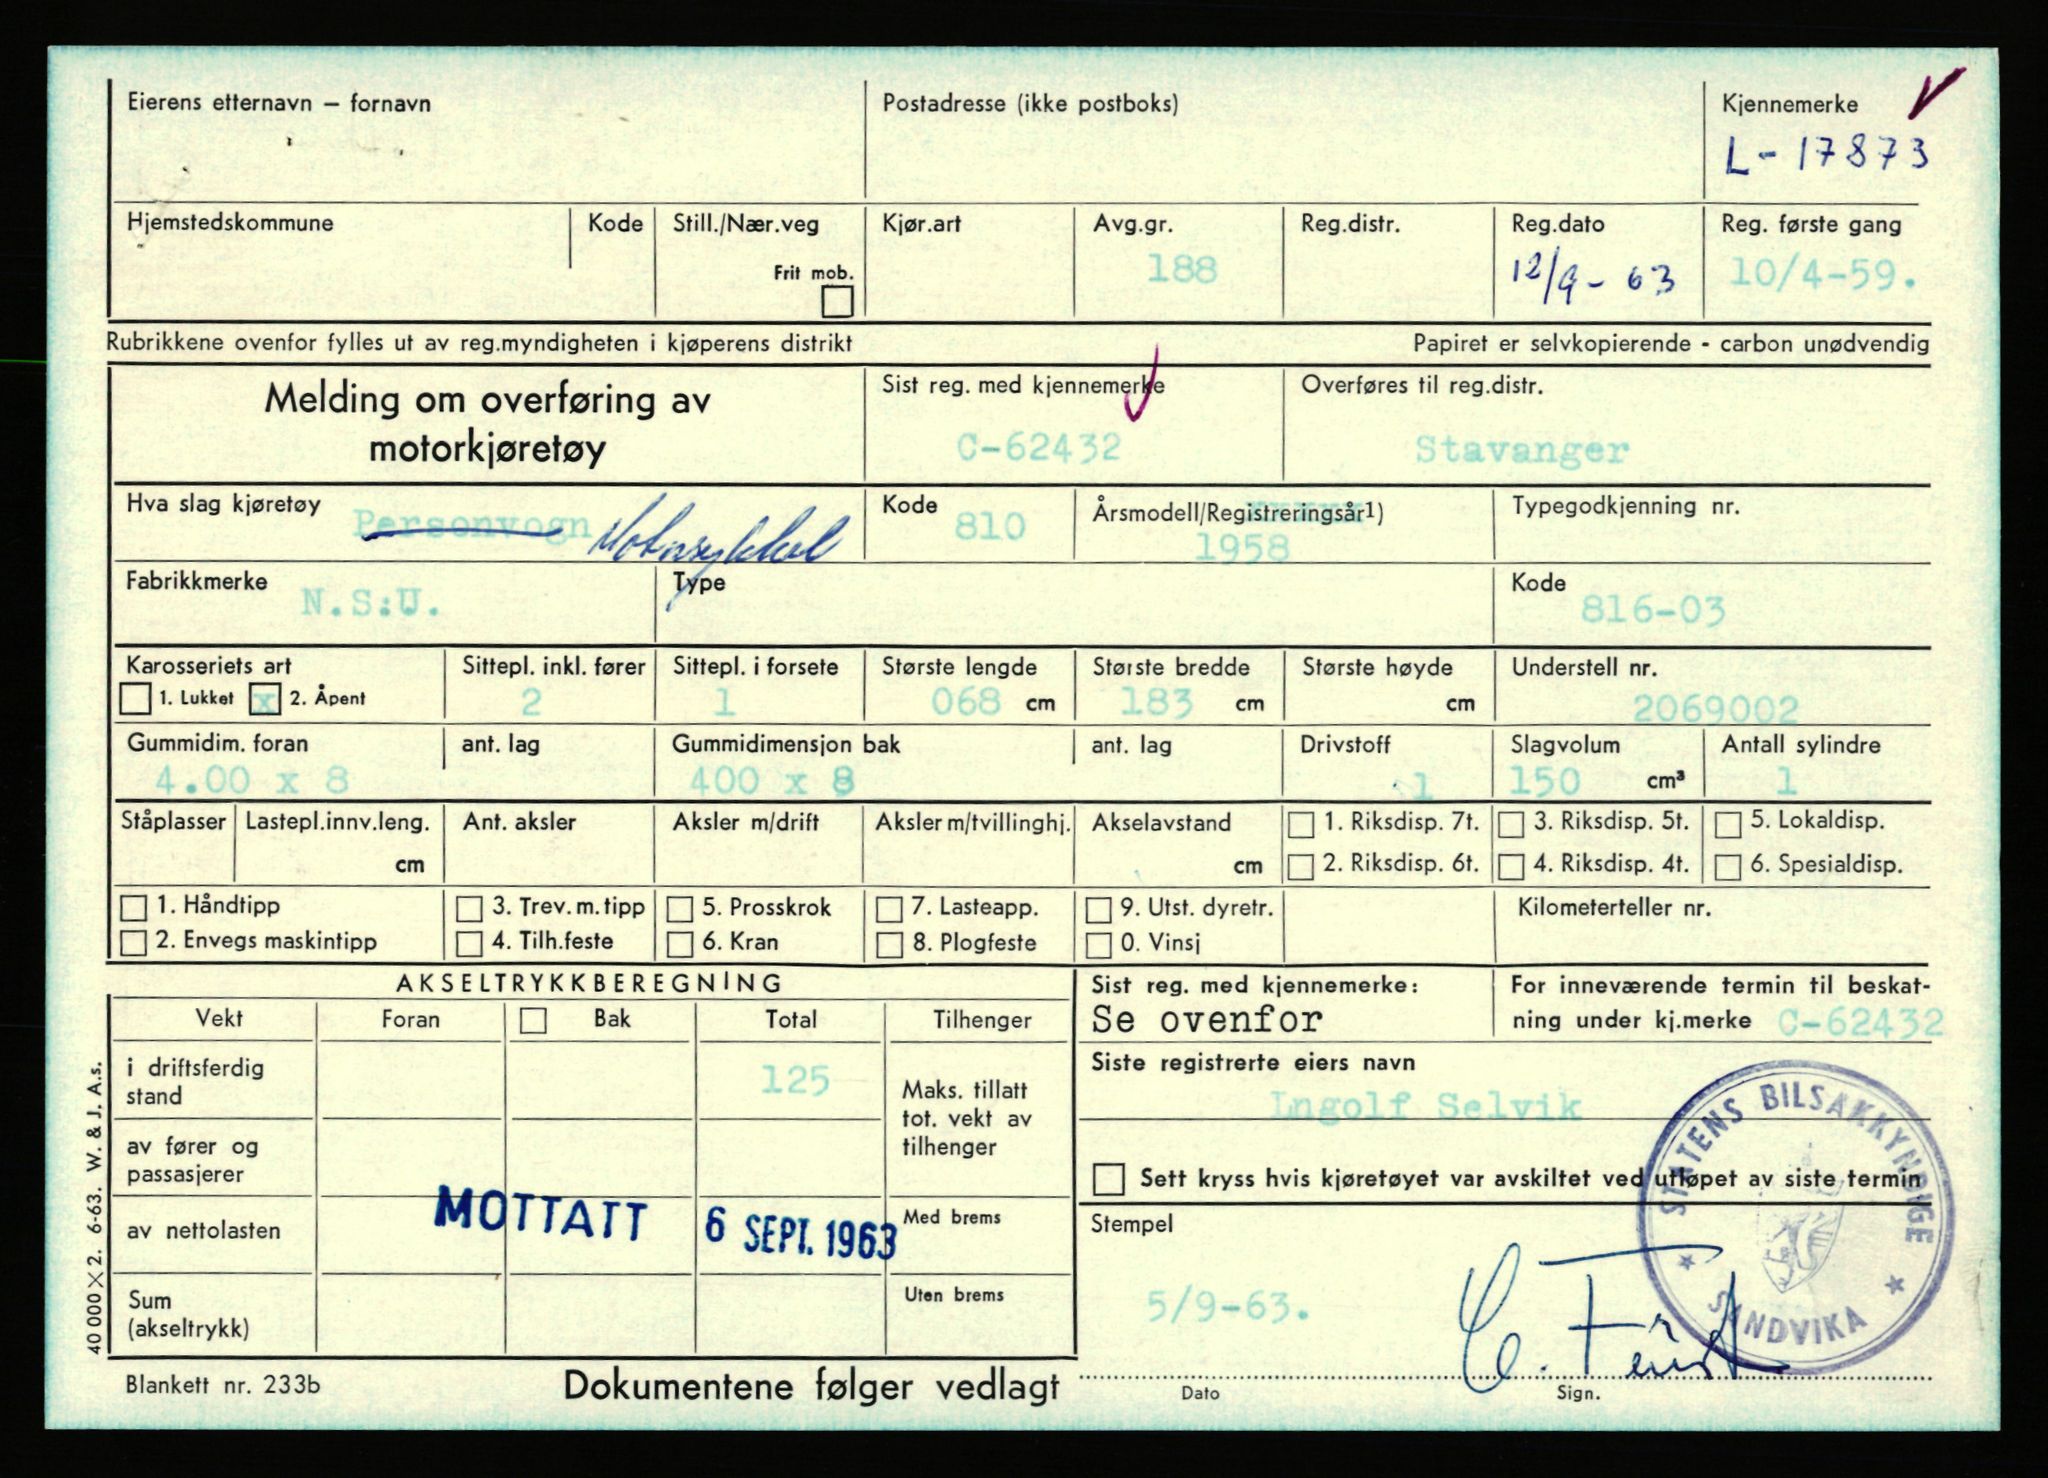 Eierens etternavn – fornavn
Postadresse (ikke postboks)
Kjennemerke
L-17873
Hjemstedskommune
Kode
Still./Nær.veg
Frit mob.
Kjør.art
Avg.gr.
188
Reg.distr.
Reg.dato
12/9-63
Reg. første gang
10/4-59.
Rubrikkene ovenfor fylles ut av reg.myndigheten i kjøperens distrikt
Papiret er selvkopierende - carbon unødvendig
Melding om overføring av
motorkjøretøy
Sist reg. med kjennemerke
C-62432
Overføres til reg.distr.
Stavanger
Hva slag kjøretøy
Personvogn Motorsykkel
Kode
810
Årsmodell/Registreringsår1)
1958
Typegodkjenning nr.
Fabrikkmerke
N.S:U.
Type
Kode
816-03
Karosseriets art
1. Lukket x 2. Åpent
Sittepl. inkl. fører
2
Sittepl. i forsete
1
Største lengde
068 cm
Største bredde
183 cm
Største høyde
cm
Understell nr.
2069002
Gummidim. foran
4.00 x 8
ant. lag
Gummidimensjon bak
400 x 8
ant. lag
Drivstoff
1
Slagvolum
150 cm³
Antall sylindre
1
Ståplasser
Lastepl.innv.leng.
cm
Ant. aksler
Aksler m/drift
Aksler m/tvillinghj.
Akselavstand
cm
1. Riksdisp. 7t.
2. Riksdisp. 6t.
3. Riksdisp. 5t.
4. Riksdisp. 4t.
5. Lokaldisp.
6. Spesialdisp.
1. Håndtipp
2. Envegs maskintipp
3. Trev. m. tipp
4. Tilh.feste
5. Prosskrok
6. Kran
7. Lasteapp.
8. Plogfeste
9. Utst. dyretr.
0. Vinsj
Kilometerteller nr.
AKSELTRYKKBEREGNING
Vekt
Foran
Bak
Total
Tilhenger
i driftsferdig
stand
125
Maks. tillatt
tot. vekt av
tilhenger
av fører og
passasjerer
av nettolasten
Med brems
Sum
(akseltrykk)
Uten brems
MOTTATT 6 SEPT. 1963
Sist reg. med kjennemerke:
Se ovenfor
For inneværende termin til beskat-
ning under kj.merke C-62432
Siste registrerte eiers navn
Lngolf Selvik
Sett kryss hvis kjøretøyet var avskiltet ved utløpet av siste termin
Stempel
STATENS BILSAKKYNDIGE
SANDVIKA
5/9-63.
Dato
Sign.
40 000 X 2. 6-63. W. & J. A.s.
Blankett nr. 233b
Dokumentene følger vedlagt